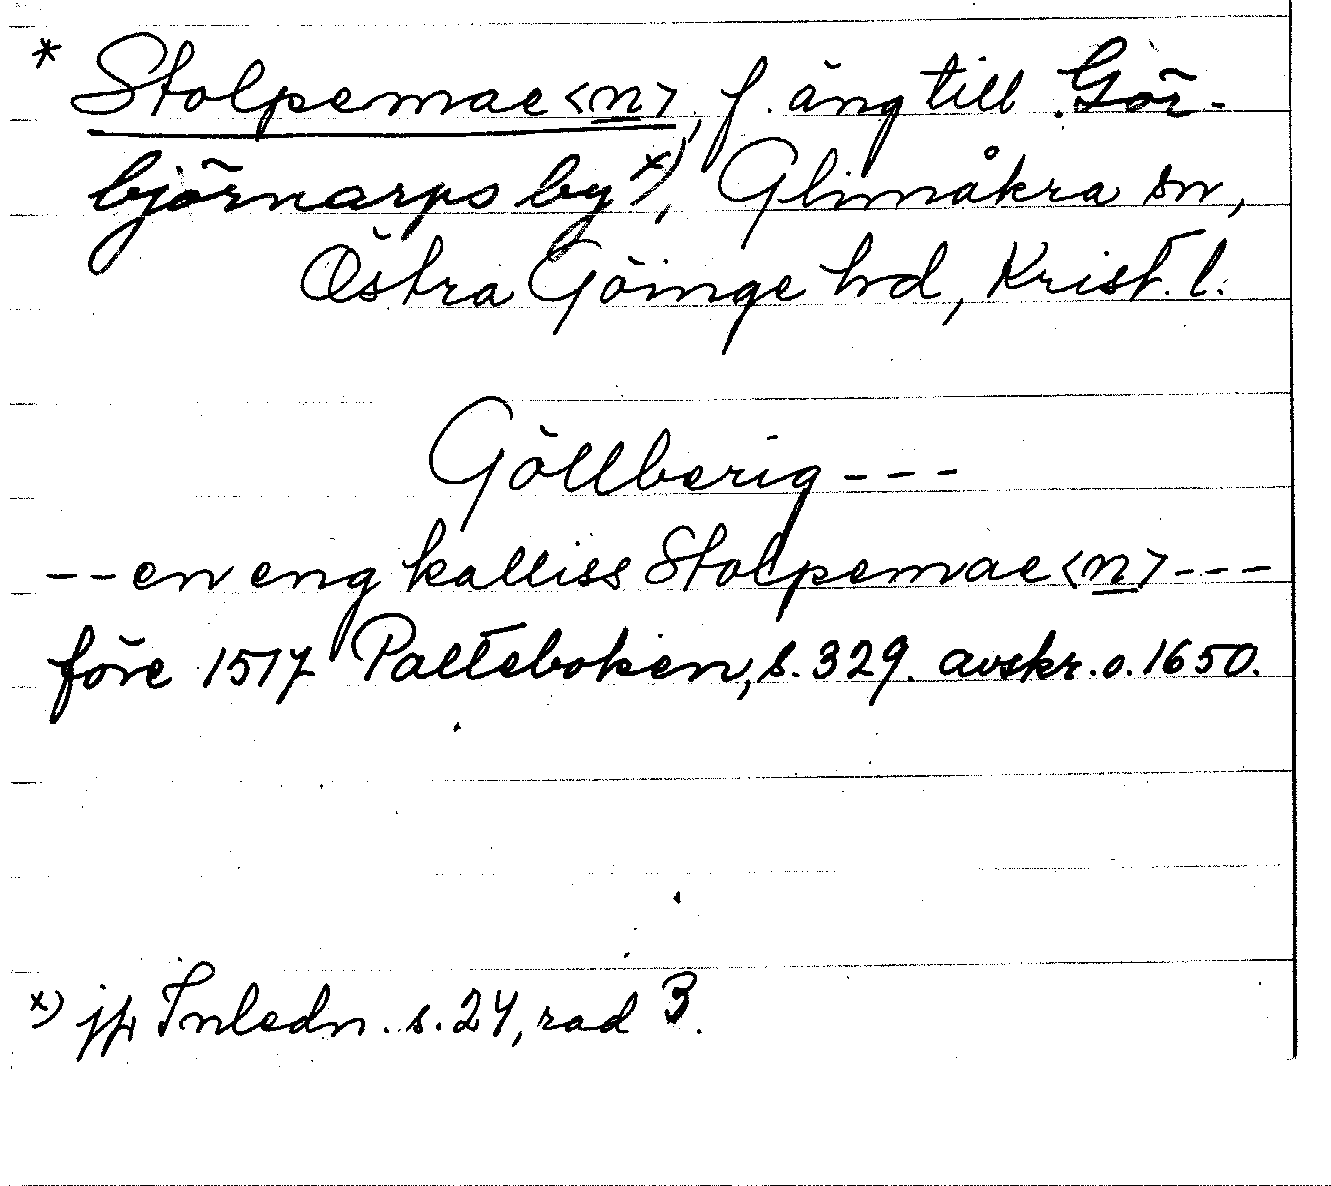 * Stolpemae<n>, f. äng till Gör-
björnarps by x), Glimåkra sn,
Östra Göinge hd, Krist. l.
Göllberig ---
-- en eng kalliss Stolpemae<n> ---
före 1517 Palteboken, s. 329. avskr. o. 1650.
x) jfr Inledn. s. 24, rad 3.